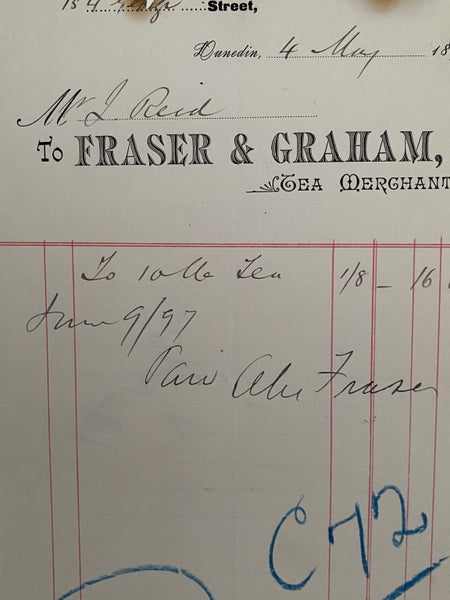 154 George Street,
Dunedin, 4 May 18
Mr J. Reid
To FRASER & GRAHAM,
TEA MERCHANT
To 10 lbs Tea 1/8 - 16
June 9/97
Paid Alex Fraser
C 72